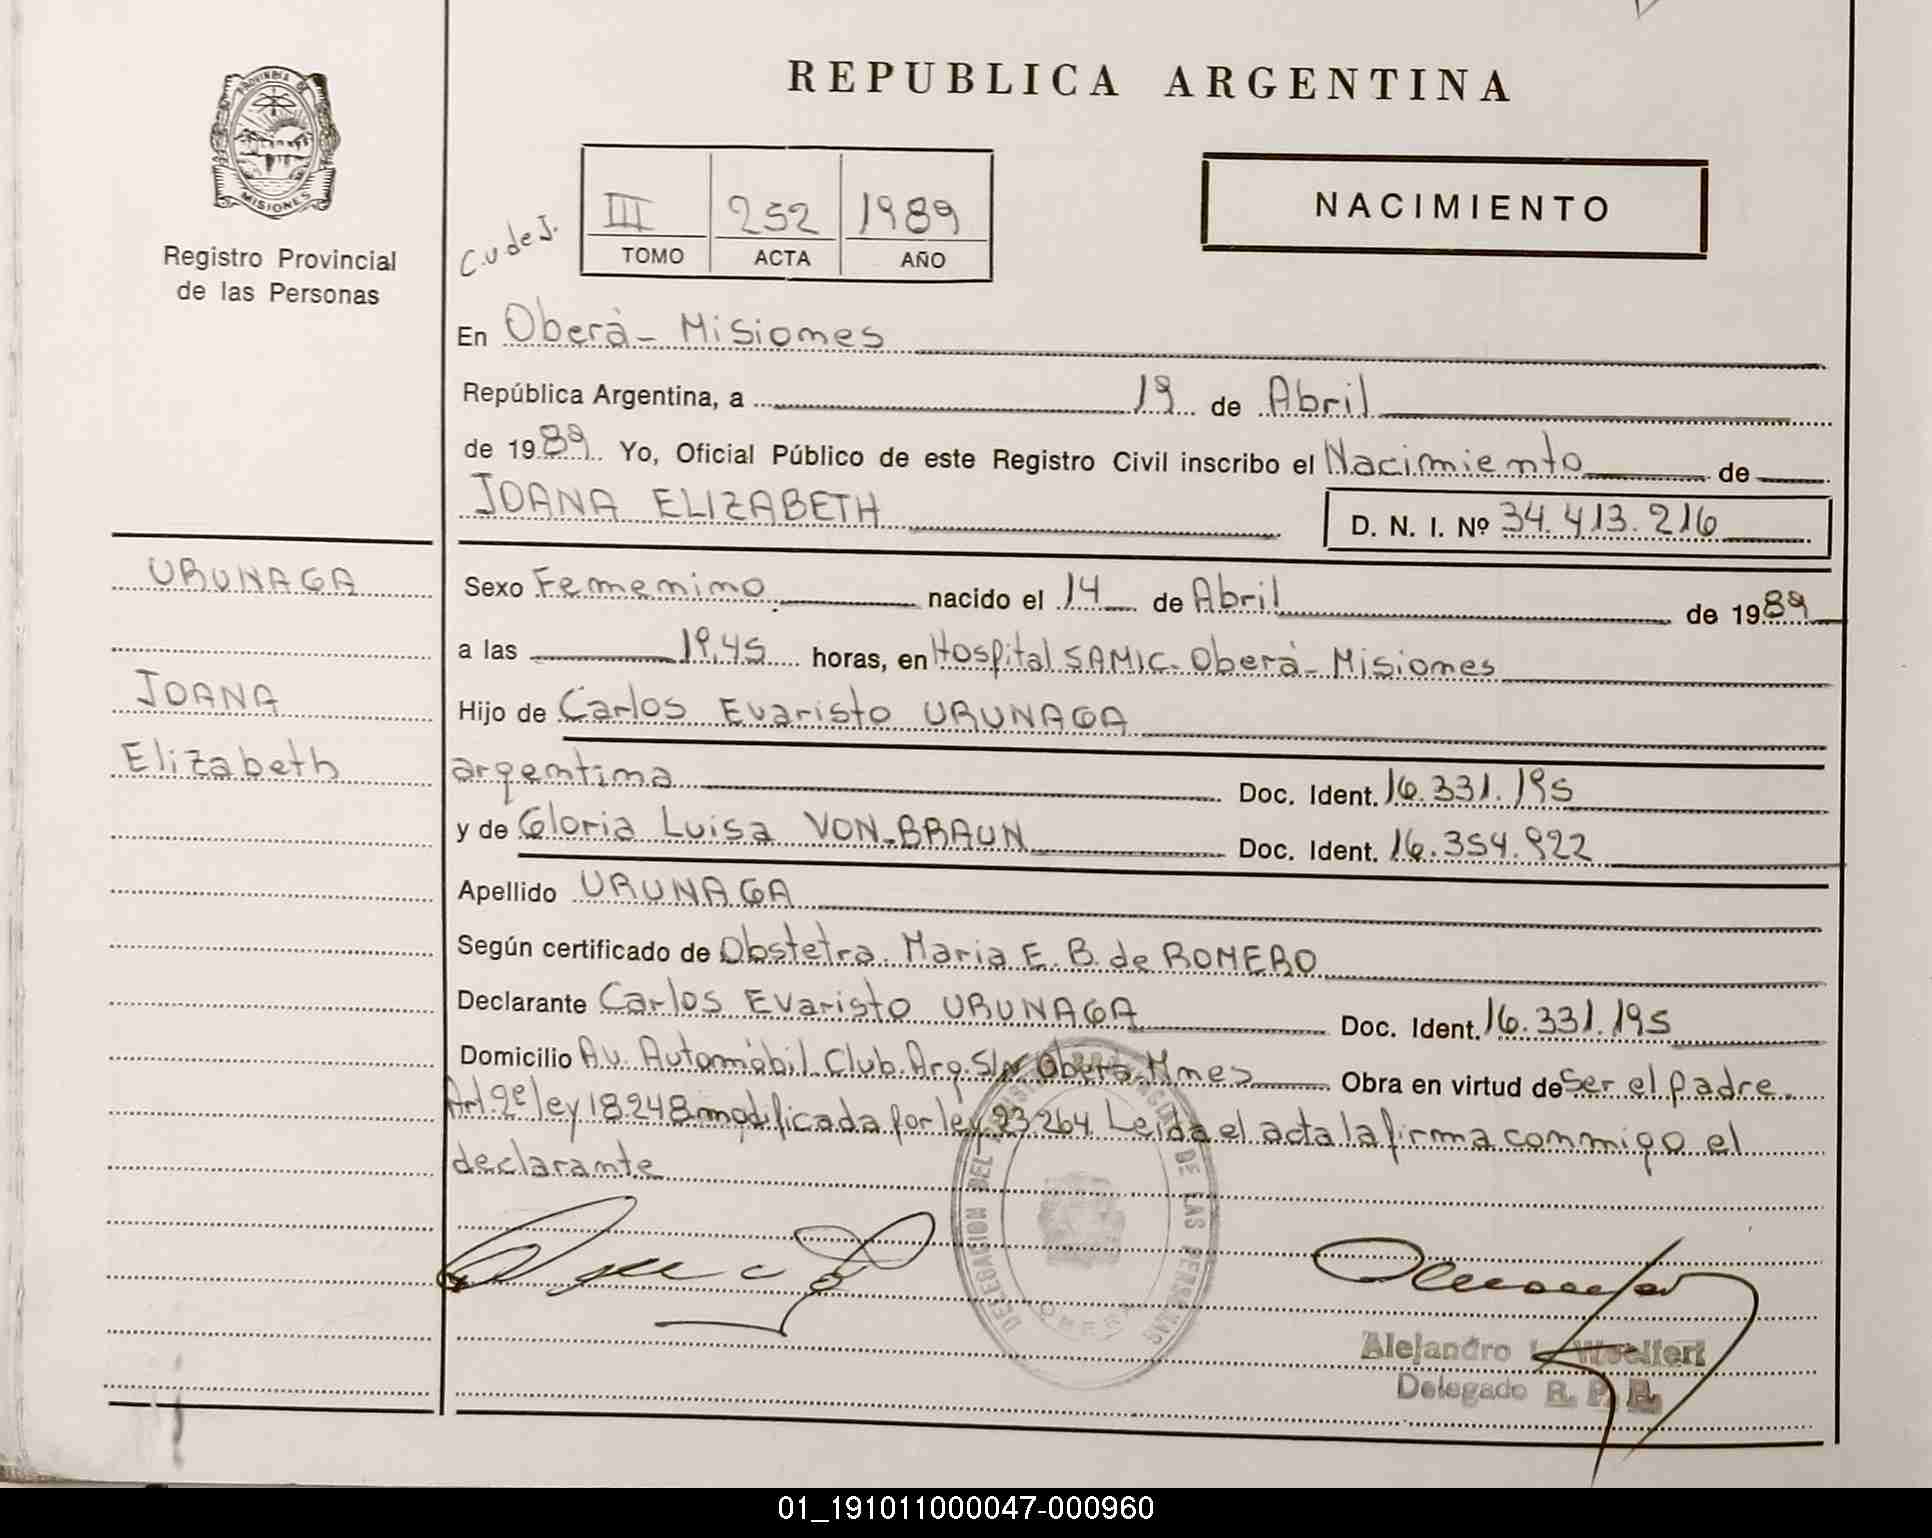 REPUBLICA ARGENTINA
PROVINCIA DE
MISIONES
Registro Provincial
de las Personas
C.U de J.
III 252 1989
TOMO ACTA AÑO
NACIMIENTO
En Oberá - Misiones
República Argentina, a 19 de Abril
de 1989 Yo, Oficial Público de este Registro Civil inscribo el Nacimiento de
JOANA ELIZABETH
D. N. I. Nº 34.413.216
URUNAGA
JOANA
Elizabeth
Sexo Femenino nacido el 14 de Abril de 1989
a las 19,45 horas, en Hospital SAMIC. Oberá - Misiones
Hijo de Carlos Evaristo URUNAGA
argentina Doc. Ident. 16.331.195
y de Gloria Luisa VON-BRAUN Doc. Ident. 16.354.922
Apellido URUNAGA
Según certificado de Obstetra. Maria E. B. de ROMERO
Declarante Carlos Evaristo URUNAGA Doc. Ident. 16.331.195
Domicilio Av. Automóbil Club. Arg. S/N Oberá. Mnes Obra en virtud de ser el padre.
Art. 2º ley 18.248 modificada por ley 23264 Leida el acta la firma conmigo el
declarante
DELEGACION DEL DE LAS PERSONAS
OBERA
Alejandro Woelfert
Delegado R. P. P.
01_191011000047-000960